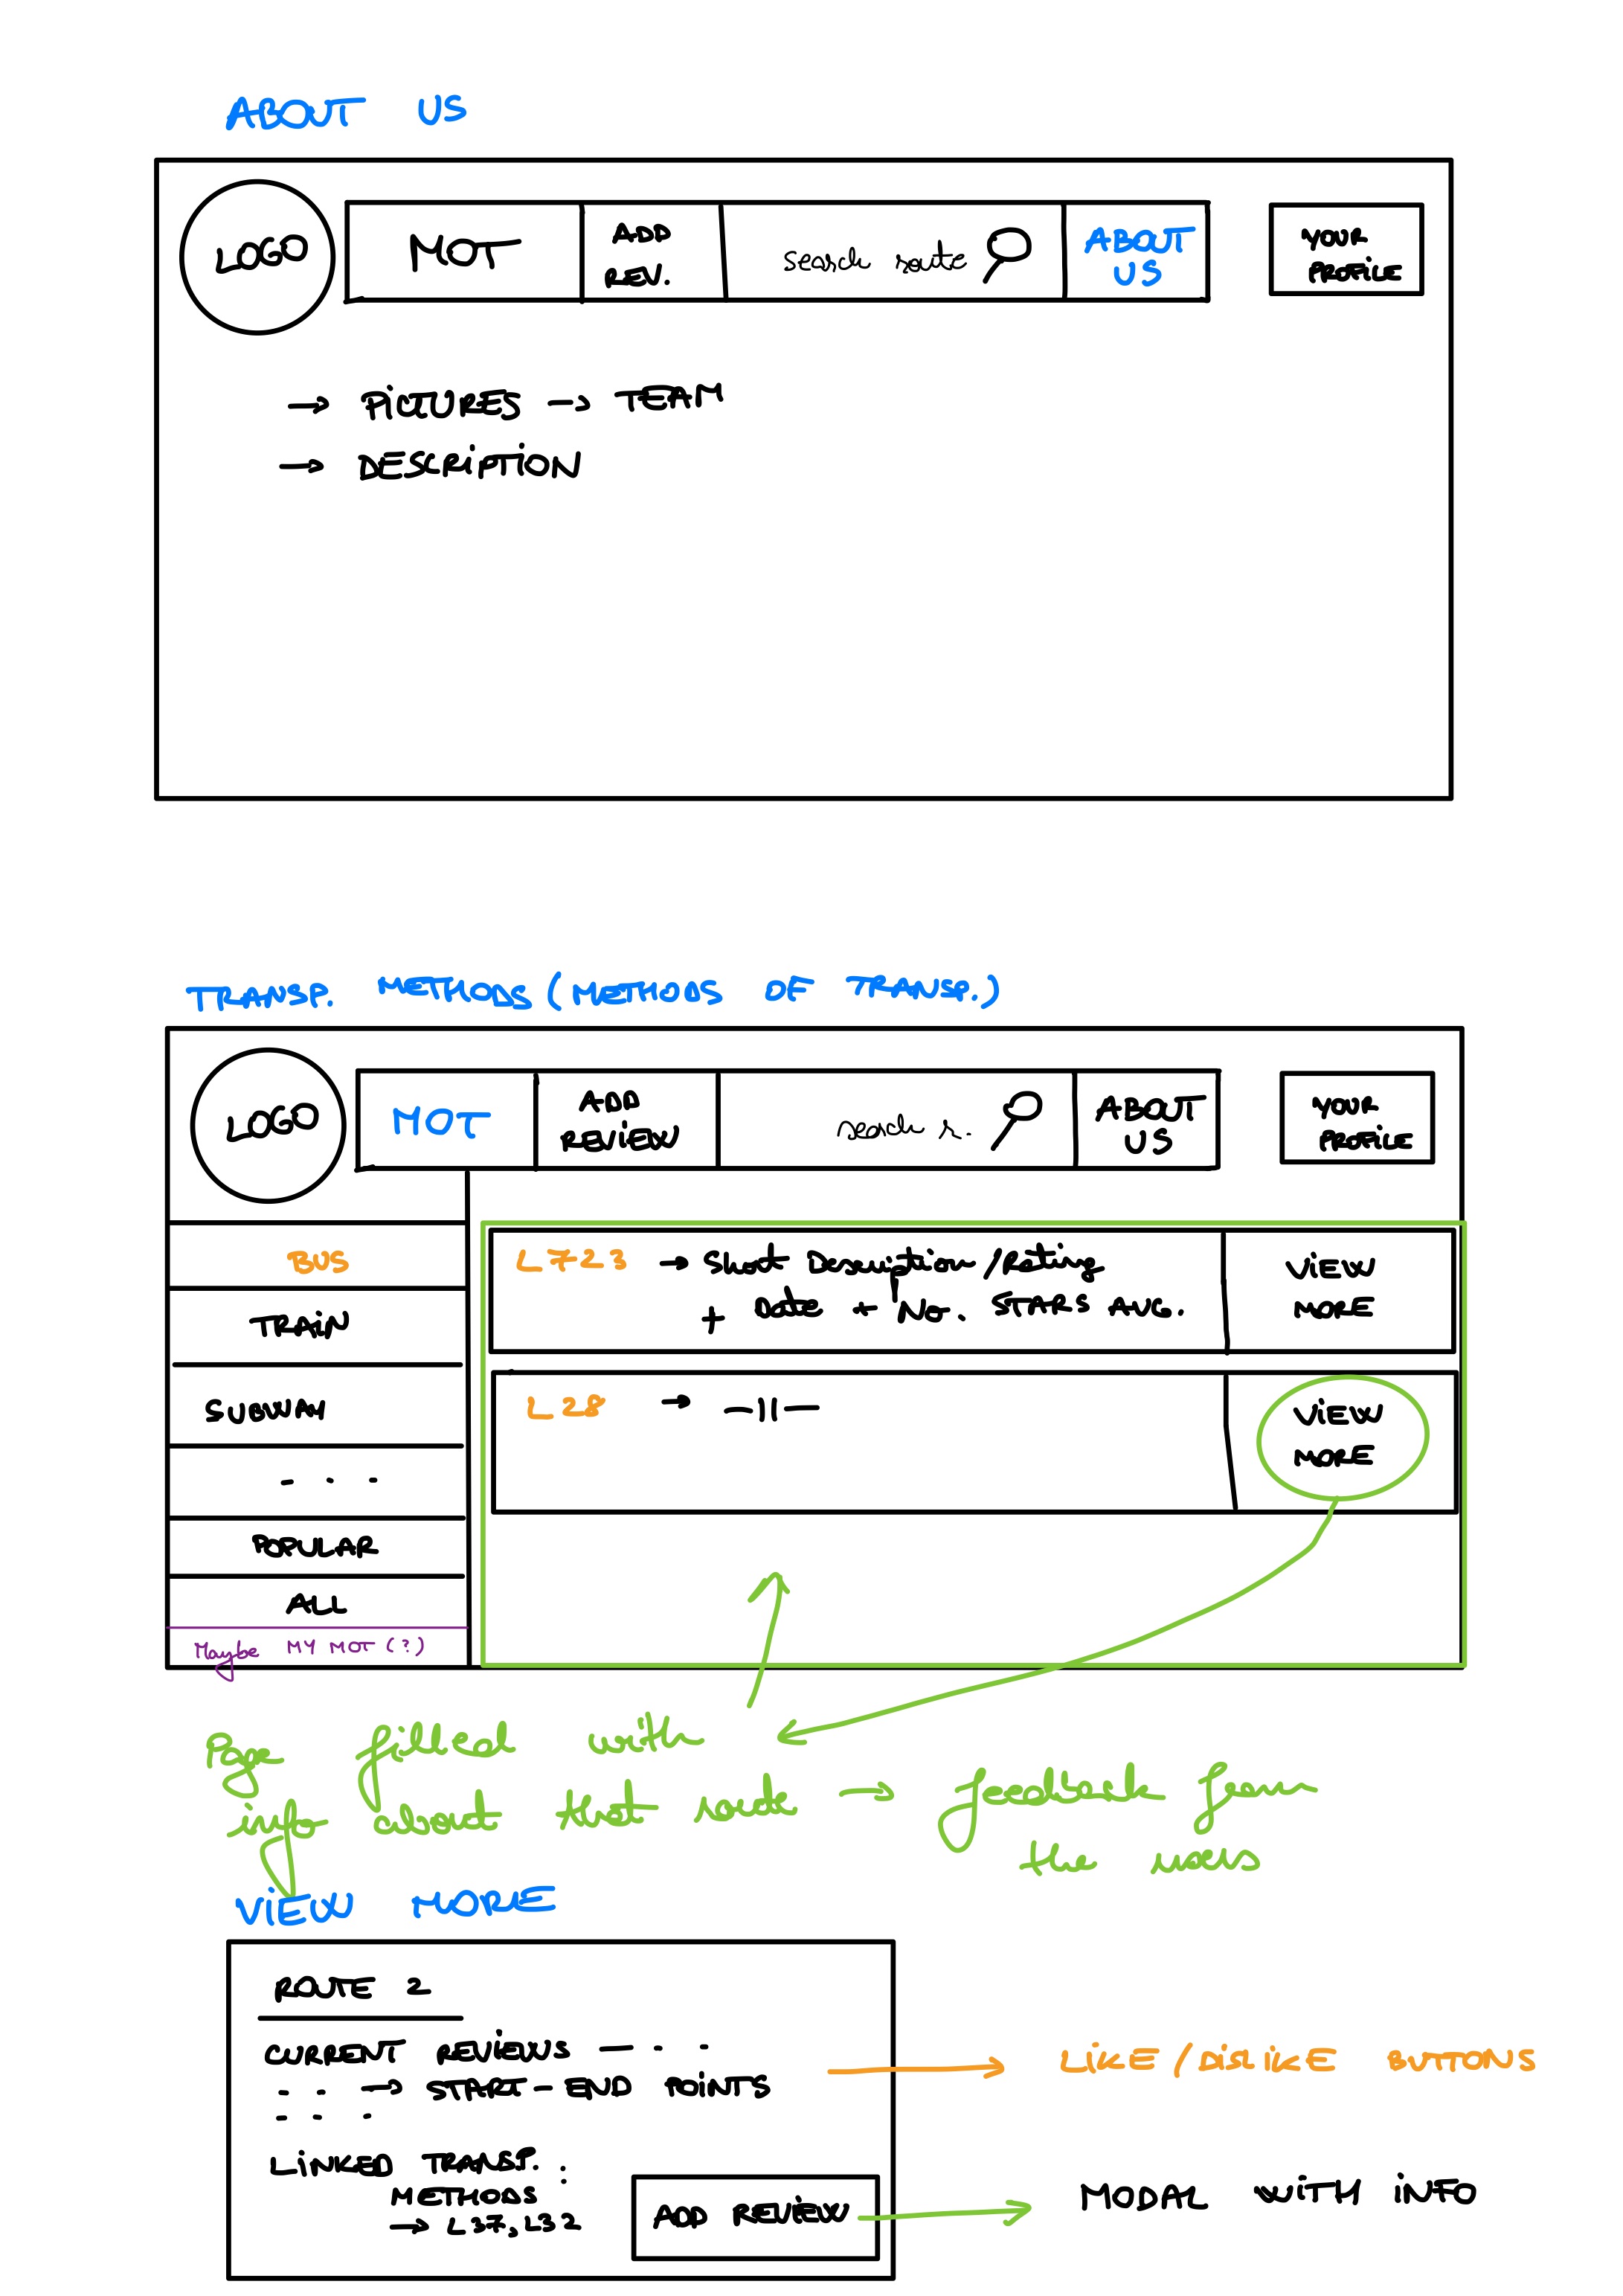 ABOUT US
LOGO
MOT
ADD
REV.
search route
ABOUT
US
YOUR
PROFiLE
→ PiCTURES → TEAM
→ DESCRiPTiON
TRANSP. METHODS (METHODS OF TRANSP.)
LOGO
MOT
ADD
REViEW
search r.
ABOUT
US
YOUR
PROFiLE
BUS
TRAiN
SUBWAY
. . .
POPULAR
ALL
Maybe MY MOT (?)
L723 → Short Description/Rating
+ Date + No. STARS AVG.
ViEW
MORE
L28 → -||-
ViEW
MORE
Page filled with
info about that route → feedback from
the users
ViEW MORE
ROUTE 2
CURRENT REViEWS - . .
. . → START-END POiNTS
. . .
LiNKED TRANSP. :
METHODS
→ L37, L32
ADD REViEW
LiKE/DiSLiKE BUTTONS
MODAL WiTH iNFO